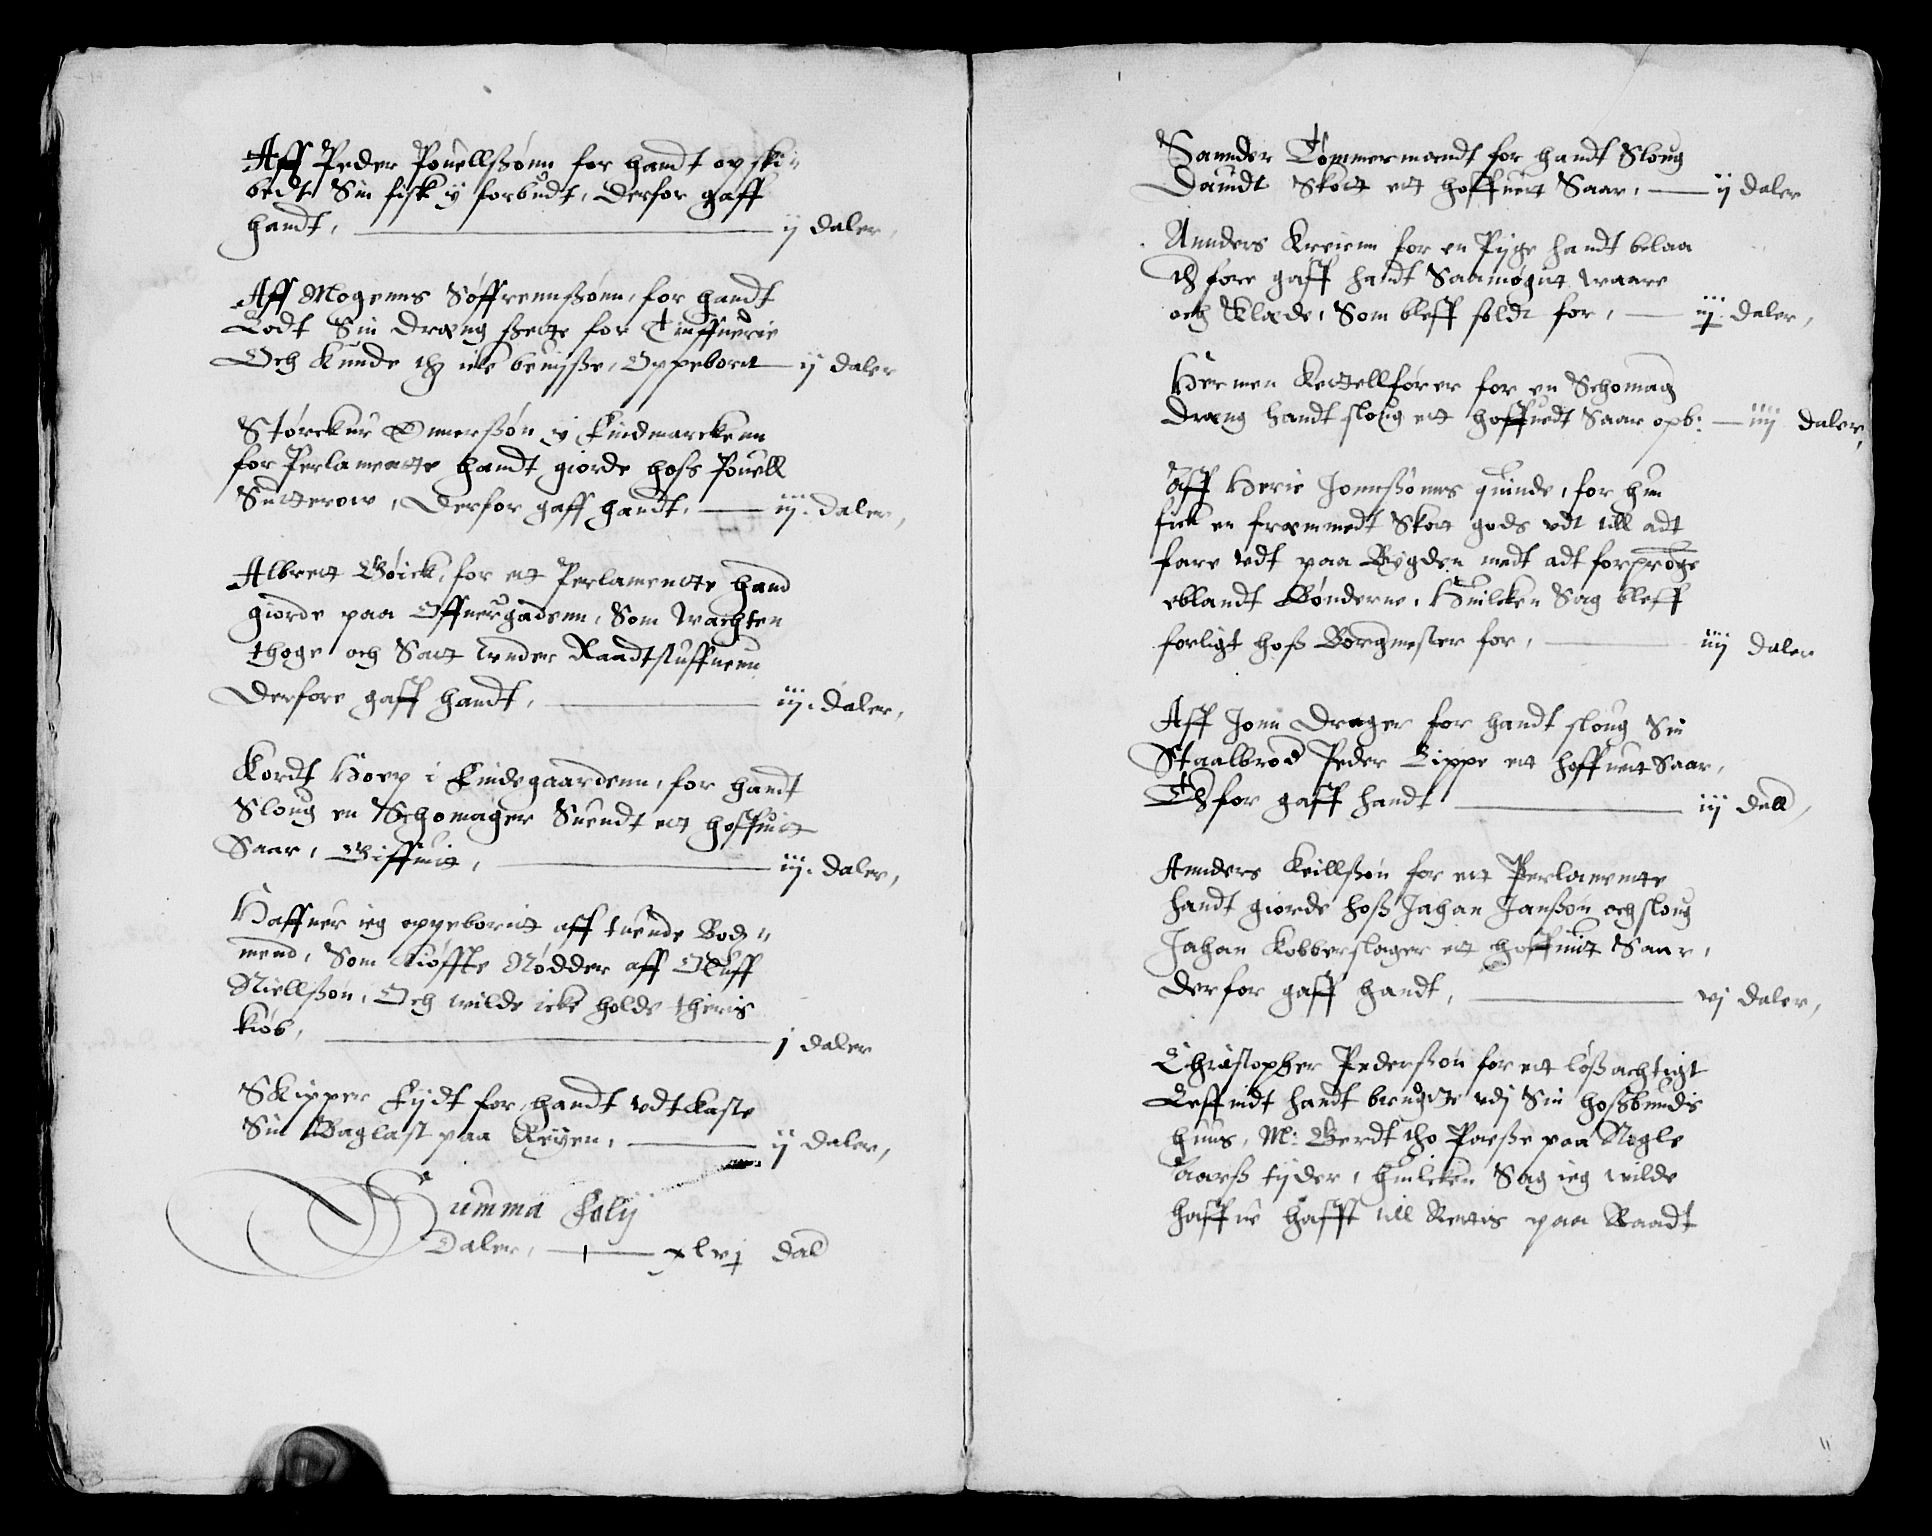 Aff Peder Pouellßønn for handt opski„
bedt Sin fisk y forbudt, Derfor gaff
handt, ij daler,
Aff Mogenns Søffrennßønn, for handt
Lodt Sin dreng sette for Tiuffuerie
Och kunde th icke beuisße, Oppeboret ij daler
Størckur Onnerßøn y Findmarckenn
for Perlamentte handt giorde hoss Pouell
Sutterow, Derfor gaff handt, iij. daler,
Albrett Bøick, for ett Perlamentte hand
giorde paa Offuergadenn, Som wachten
thoge och Satt wnder Raadtstuffuenn
Derfore gaff handt, iij. daler,
Kordt Hoep i Findegaardenn, for handt
Sloug en Schomager Suendt ett hoffuitt
Saar, Giffuit, iij. daler,
Haffuer ieg oppeborritt aff tuende Bod„
mend, Som kiøffte Nødder aff Oluff
Niellßøn, Och wilde icke holde theris
kiøb, j daler
Skipper Fijdt for handt vdtkaste
Sin Baglast paa Reyen, ij daler,
Summa Folij
Daler, xlvj dal
Sannder Tømmermandt for handt Sloug
Dauidt Skott ett hoffuett Saar, ij daler
Annders Kreienn for en Pijge handt belaa
th fore gaff handt Saamøgitt waare
och Klæde, Som bleff soldt for, iij. daler,
Hermen Kettellfører for en Schomag
dreng handt sloug ett hoffuedt Saar opb: iiij daler,
Aff Herie Jonnßønns quinde, for hun
fick en fremmedt Skott gods vdt till adt
fare vdt paa Bygden medt adt forprange
eblandt Bønderne, Huilcken Sag bleff
forligt hoß Borgmester for, iiij daler
Aff Jonn Drager for handt sloug Sin
Staalbrod Peder Lippe ett hoffuett Saar,
Th for gaff handt iij dall,
Annders Keillßøn for ett Perlamentte
handt giorde hoß Jahan Janßøn och sloug
Jahan Kobberslager ett hoffuitt Saar,
derfor gaff handt, vj daler,
Christopher Pederßøn for ett løßachtigt
Leffnidt handt brugtte vdj Sin hoßbundis
huus, M: Gerdt tho Poeße paa Nogle
Aarß tijder, huilcken Sag ieg wilde
haffue hafft till Rettis paa Raadt